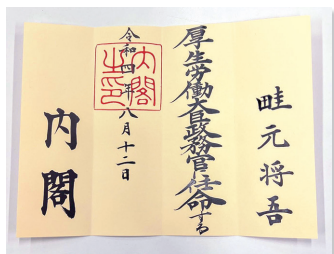 畦元将吾
厚生労働大臣政務官に任命する
令和四年八月十二日
内閣
内閣之印